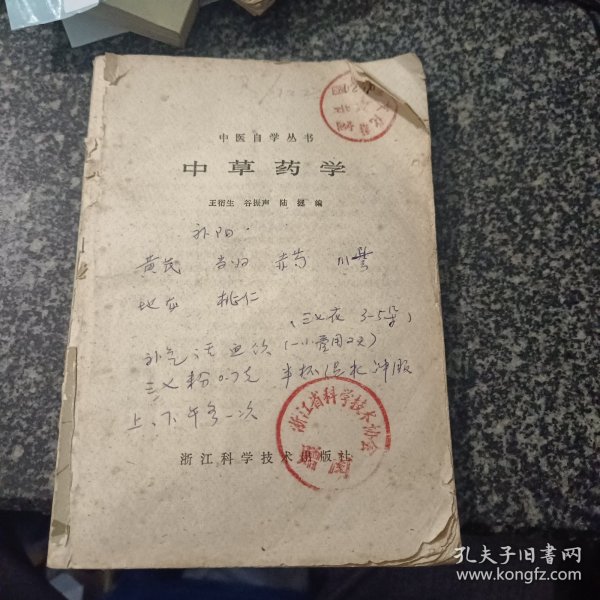 中医自学丛书
中草药学
王衍生 谷振声 陆拯 编
补阳
黄芪 当归 赤芍 川芎
地龙 桃仁
(三七花 3-5朵)
补气活血饮(一小壶用2天)
三七粉 0.7克 半杯温水冲服
上、下午各一次
浙江省科学技术协会
浙江科学技术出版社
孔夫子旧书网
www.kongfz.com